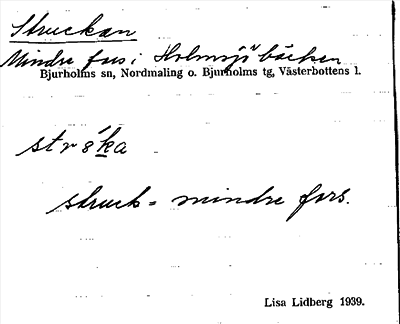 Struckan
Mindre fors i Holmsjöbäcken
Bjurholms sn, Nordmaling o. Bjurholms tg, Västerbottens l.
struck = mindre fors.
Lisa Lidberg 1939.